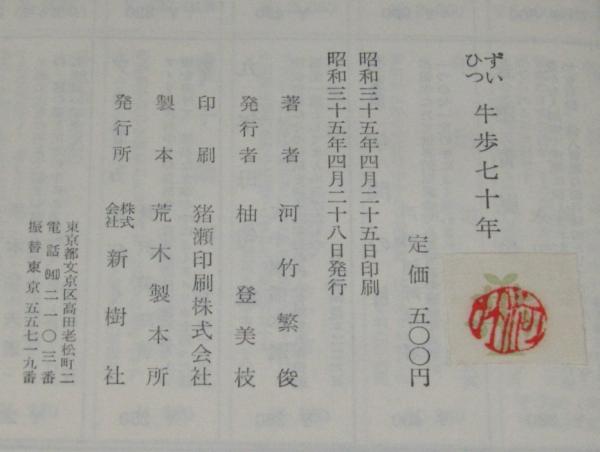 ずいひつ 牛歩七十年
定価 五〇〇円
昭和三十五年四月二十五日印刷
昭和三十五年四月二十八日発行
著者 河竹繁俊
発行者 柚登美枝
印刷 猪瀬印刷株式会社
製本 荒木製本所
発行所 株式会社 新樹社
東京都文京区高田老松町二
電話(941)二一〇三番
振替東京五五七一九番